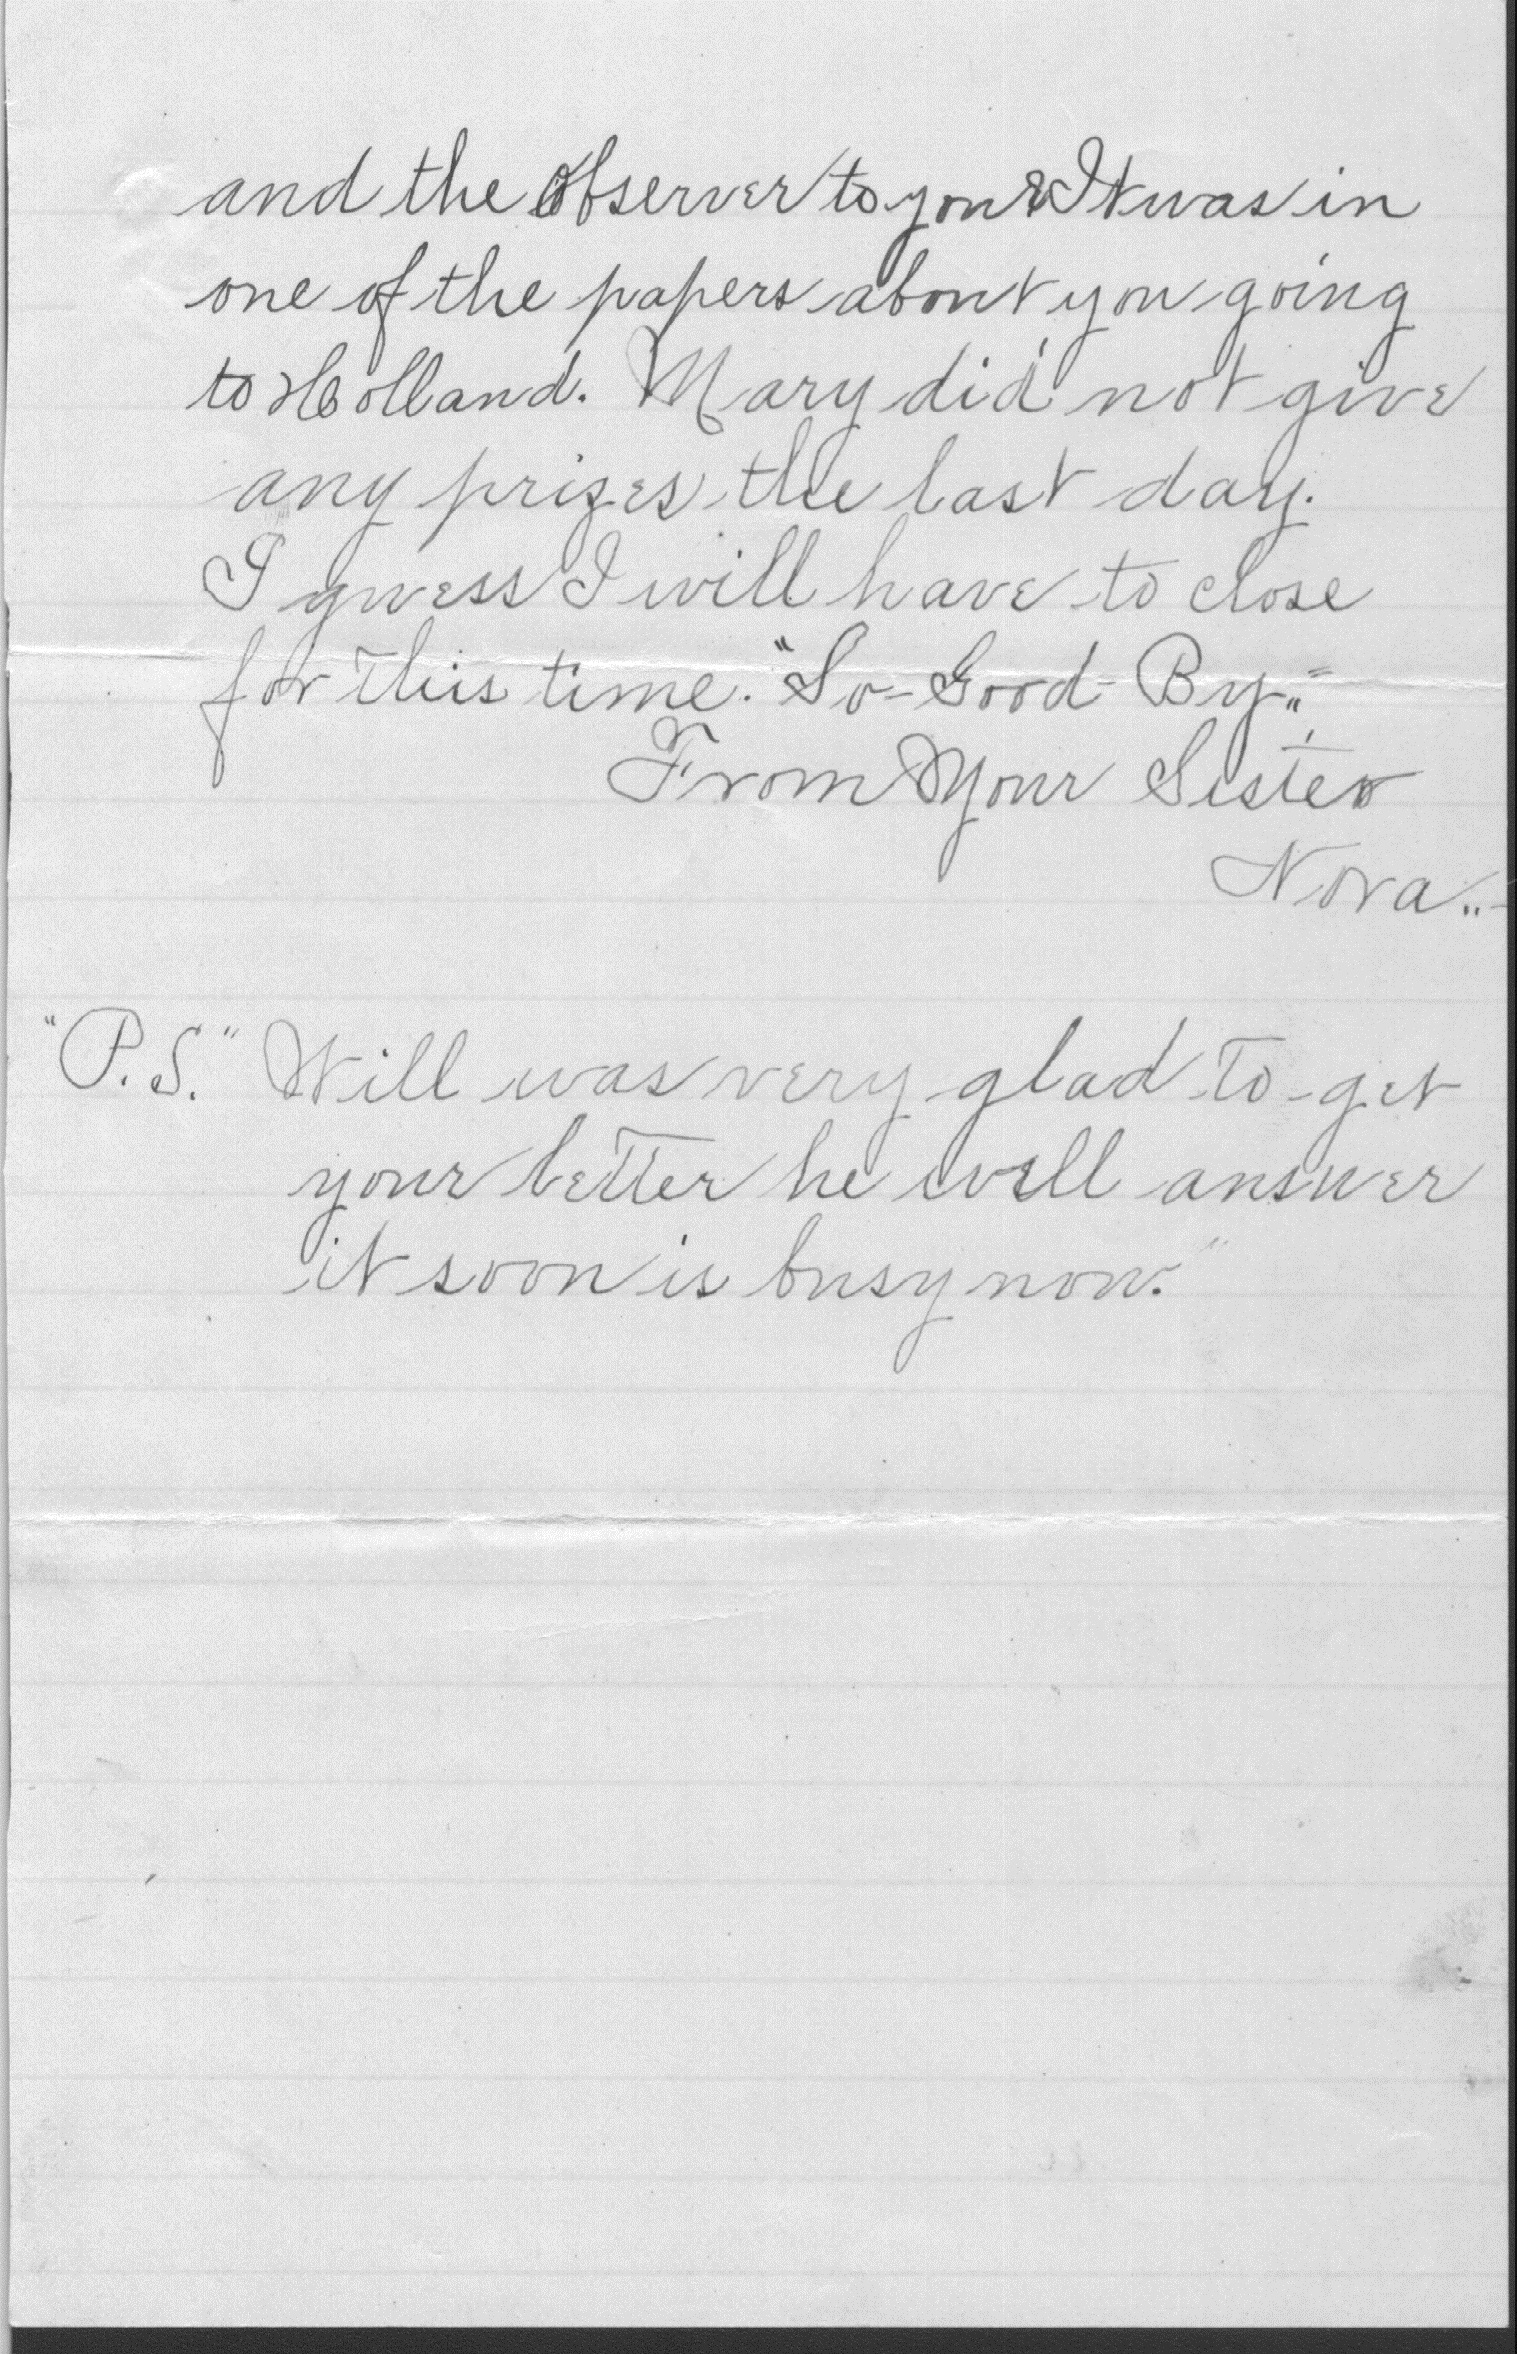 and the Observer to you & It was in
one of the papers about you going
to Holland. Mary did not give
any prizes the last day.
I guess I will have to close
for this time. "So-Good-By."
From Your Sister
Nora.
"P.S." Will was very glad to get
your letter he will answer
it soon is busy now."